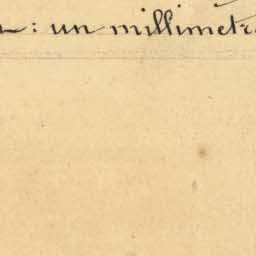 : un millimetr